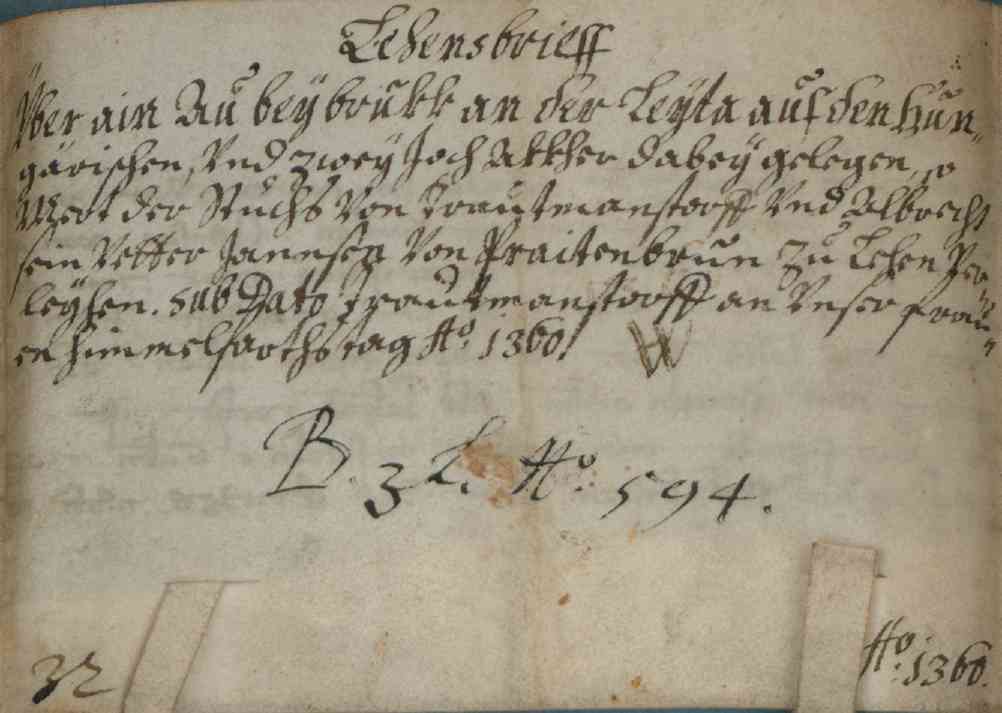 Lehensbrieff
Vber ain Au bey brukk an der Leyta auf den Hun-
gärischen, Vnd zwey Joch Akkher dabey gelegen, so
Mert der Stuchs Von Trautmanstorff Vnd Albrecht
sein Vetter Jannsen Von Praitenbrun zu Lehen Ver-
leyhen. sub Dato Trautmanstorff an Vnser frau-
en himmelfarths tag Ao. 1360.
W
B. 3 L. No. 594.
32
Ao. 1360.